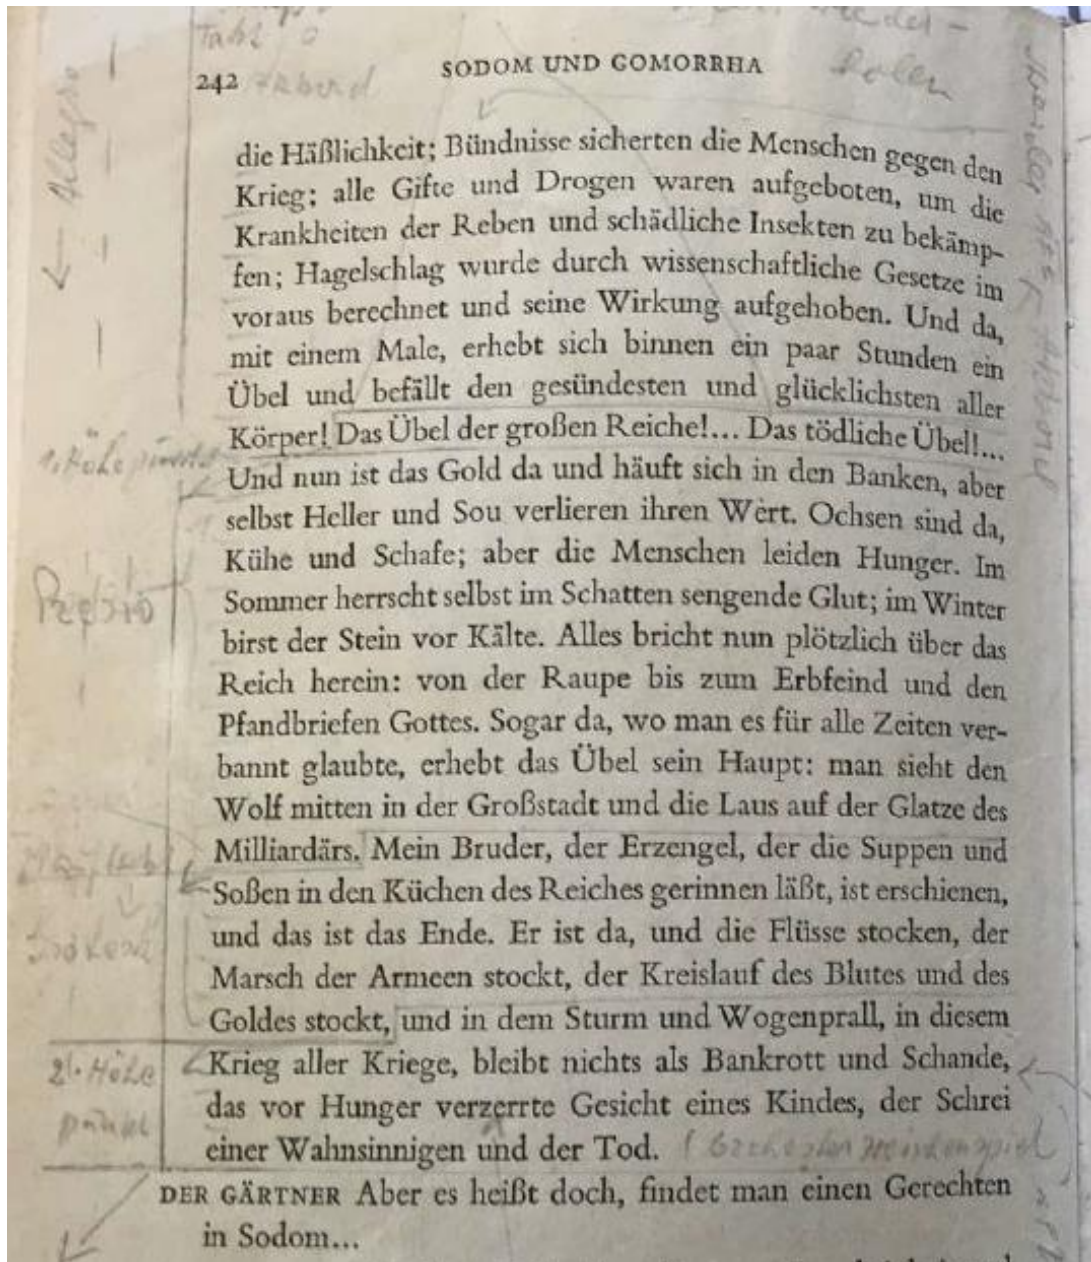 242
SODOM UND GOMORRHA
die Häßlichkeit; Bündnisse sicherten die Menschen gegen den
Krieg; alle Gifte und Drogen waren aufgeboten, um die
Krankheiten der Reben und schädliche Insekten zu bekämp-
fen; Hagelschlag wurde durch wissenschaftliche Gesetze im
voraus berechnet und seine Wirkung aufgehoben. Und da,
mit einem Male, erhebt sich binnen ein paar Stunden ein
Übel und befällt den gesündesten und glücklichsten aller
Körper! Das Übel der großen Reiche!... Das tödliche Übel!...
Und nun ist das Gold da und häuft sich in den Banken, aber
selbst Heller und Sou verlieren ihren Wert. Ochsen sind da,
Kühe und Schafe; aber die Menschen leiden Hunger. Im
Sommer herrscht selbst im Schatten sengende Glut; im Winter
birst der Stein vor Kälte. Alles bricht nun plötzlich über das
Reich herein: von der Raupe bis zum Erbfeind und den
Pfandbriefen Gottes. Sogar da, wo man es für alle Zeiten ver-
bannt glaubte, erhebt das Übel sein Haupt: man sieht den
Wolf mitten in der Großstadt und die Laus auf der Glatze des
Milliardärs. Mein Bruder, der Erzengel, der die Suppen und
Soßen in den Küchen des Reiches gerinnen läßt, ist erschienen,
und das ist das Ende. Er ist da, und die Flüsse stocken, der
Marsch der Armeen stockt, der Kreislauf des Blutes und des
Goldes stockt, und in dem Sturm und Wogenprall, in diesem
Krieg aller Kriege, bleibt nichts als Bankrott und Schande,
das vor Hunger verzerrte Gesicht eines Kindes, der Schrei
einer Wahnsinnigen und der Tod.
DER GÄRTNER Aber es heißt doch, findet man einen Gerechten
in Sodom...
Allegro
1. Höhepunkt
Presto
2. Höhe
punkt